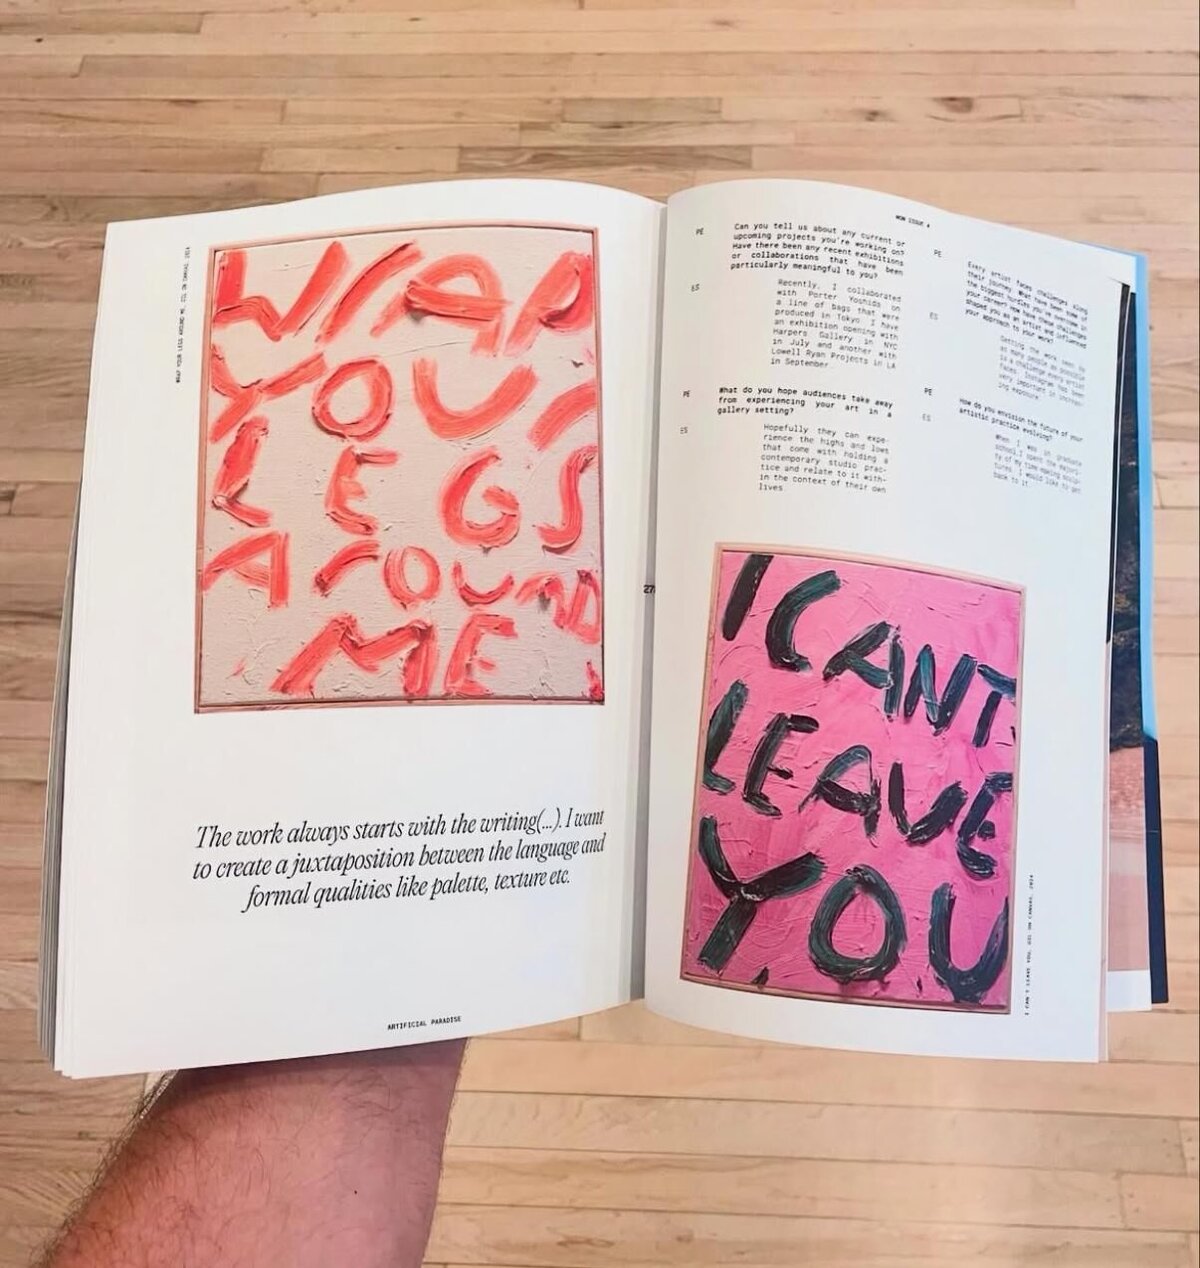 WRAP YOUR LEGS AROUND ME, OIL ON CANVAS, 2024
WRAP
YOUR
LEGS
AROUND
ME
The work always starts with the writing(...). I want
to create a juxtaposition between the language and
formal qualities like palette, texture etc.
ARTIFICIAL PARADISE
27
WOW ISSUE 4
PE
Can you tell us about any current or
upcoming projects you're working on?
Have there been any recent exhibitions
or collaborations that have been
particularly meaningful to you?
ES
Recently, I collaborated
with Porter Yoshida on
a line of bags that were
produced in Tokyo. I have
an exhibition opening with
Harpers Gallery in NYC
in July and another with
Lowell Ryan Projects in LA
in September.
PE
What do you hope audiences take away
from experiencing your art in a
gallery setting?
ES
Hopefully they can expe-
rience the highs and lows
that come with holding a
contemporary studio prac-
tice and relate to it with-
in the context of their own
lives.
PE
Every artist faces challenges along
their journey. What have been some of
the biggest hurdles you've overcome in
your career? How have these challenges
shaped you as an artist and influenced
your approach to your work?
ES
Getting the work seen by
as many people as possible
is a challenge every artist
faces. Instagram has been
very important in increas-
ing exposure.
PE
How do you envision the future of your
artistic practice evolving?
ES
When I was in graduate
school, I spent the majori-
ty of my time making sculp-
tures. I would like to get
back to it.
I CANT
LEAVE
YOU
I CAN'T LEAVE YOU, OIL ON CANVAS, 2024